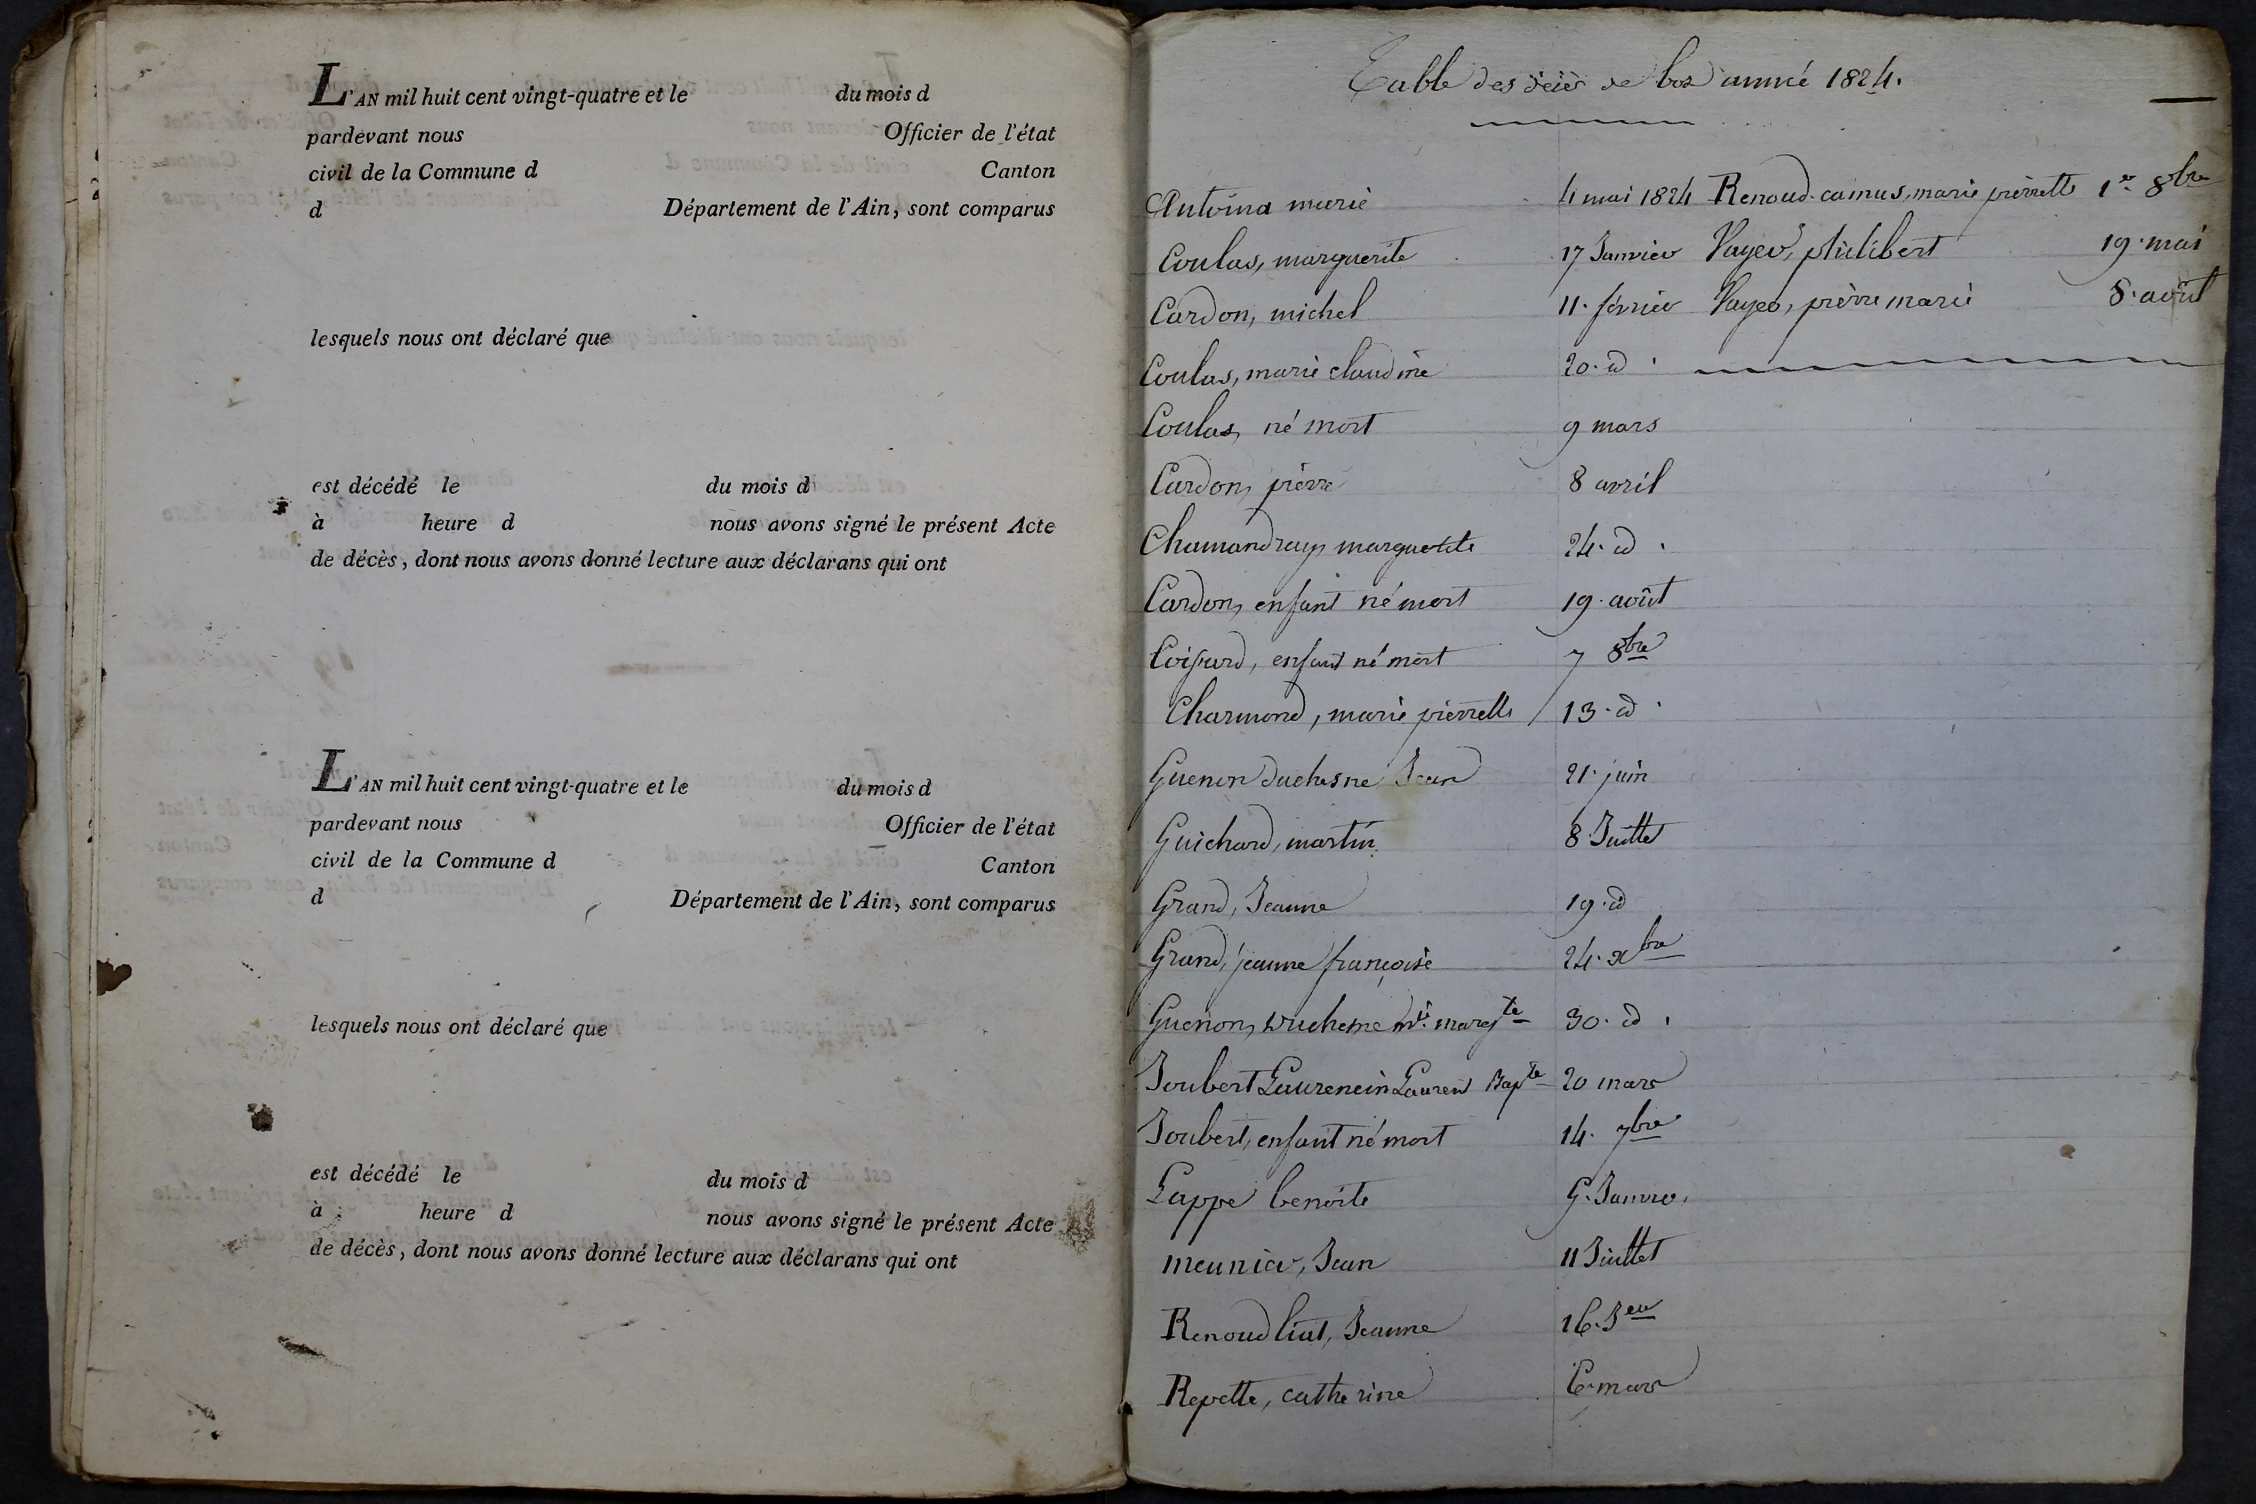 L'AN mil huit cent vingt-quatre et le du mois d
pardevant nous Officier de l'état
civil de la Commune d Canton
d Département de l'Ain, sont comparus
lesquels nous ont déclaré que
est décédé le du mois d
à heure d nous avons signé le présent Acte
de décès, dont nous avons donné lecture aux déclarans qui ont
L'AN mil huit cent vingt-quatre et le du mois d
pardevant nous Officier de l'état
civil de la Commune d Canton
d Département de l'Ain, sont comparus
lesquels nous ont déclaré que
est décédé le du mois d
à heure d nous avons signé le présent Acte
de décès, dont nous avons donné lecture aux déclarans qui ont
Table des de boz année 1824.
Antoina marie 4 mai 1824 Renoud-camus, marie pierrette 1er 8bre
Coulas, marguerite 17 Janvier Vayer, philibert 19. mai
Cardon, michel 11. février Vayer, pierre marie 8. août
Coulas, marie claudine 20. d
Coulas, né mort 9 mars
Cardon, pierre 8 avril
Chamandray, marguerite 24. d
Cardon, enfant né mort 19. août
Coisard, enfant né mort 7 8bre
Charmond, marie pierrette 13. d
Guenon duchesne Jean 21. juin
Guichard, martin 8. Juillet
Grand, Jeanne 19. d
Grand, jeanne françoise 24. xbre
Guenon, duchesne mie margte 30. d
Joubert Laurencin Laurent Bapte 20 mars
Joubert, enfant né mort 14. 7bre
Lappe benoite Janvier
meunier, Jean 11 Juillet
Renoud liat, Jeanne 16. Jer
Repette, catherine 6. mars